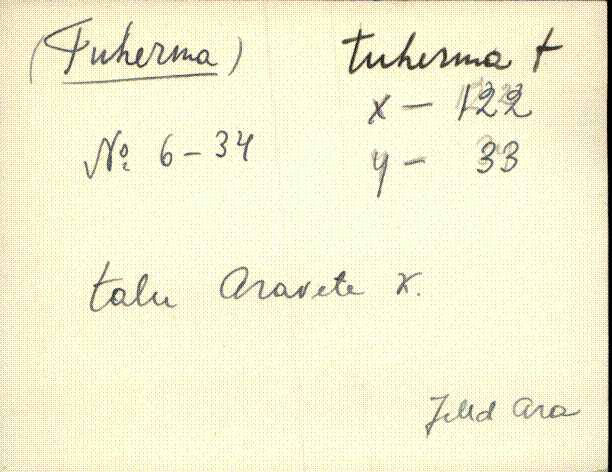 (Tuherma)
tuherma t
x - 122
№ 6-34
y - 33
talu Aravete k.
Ara